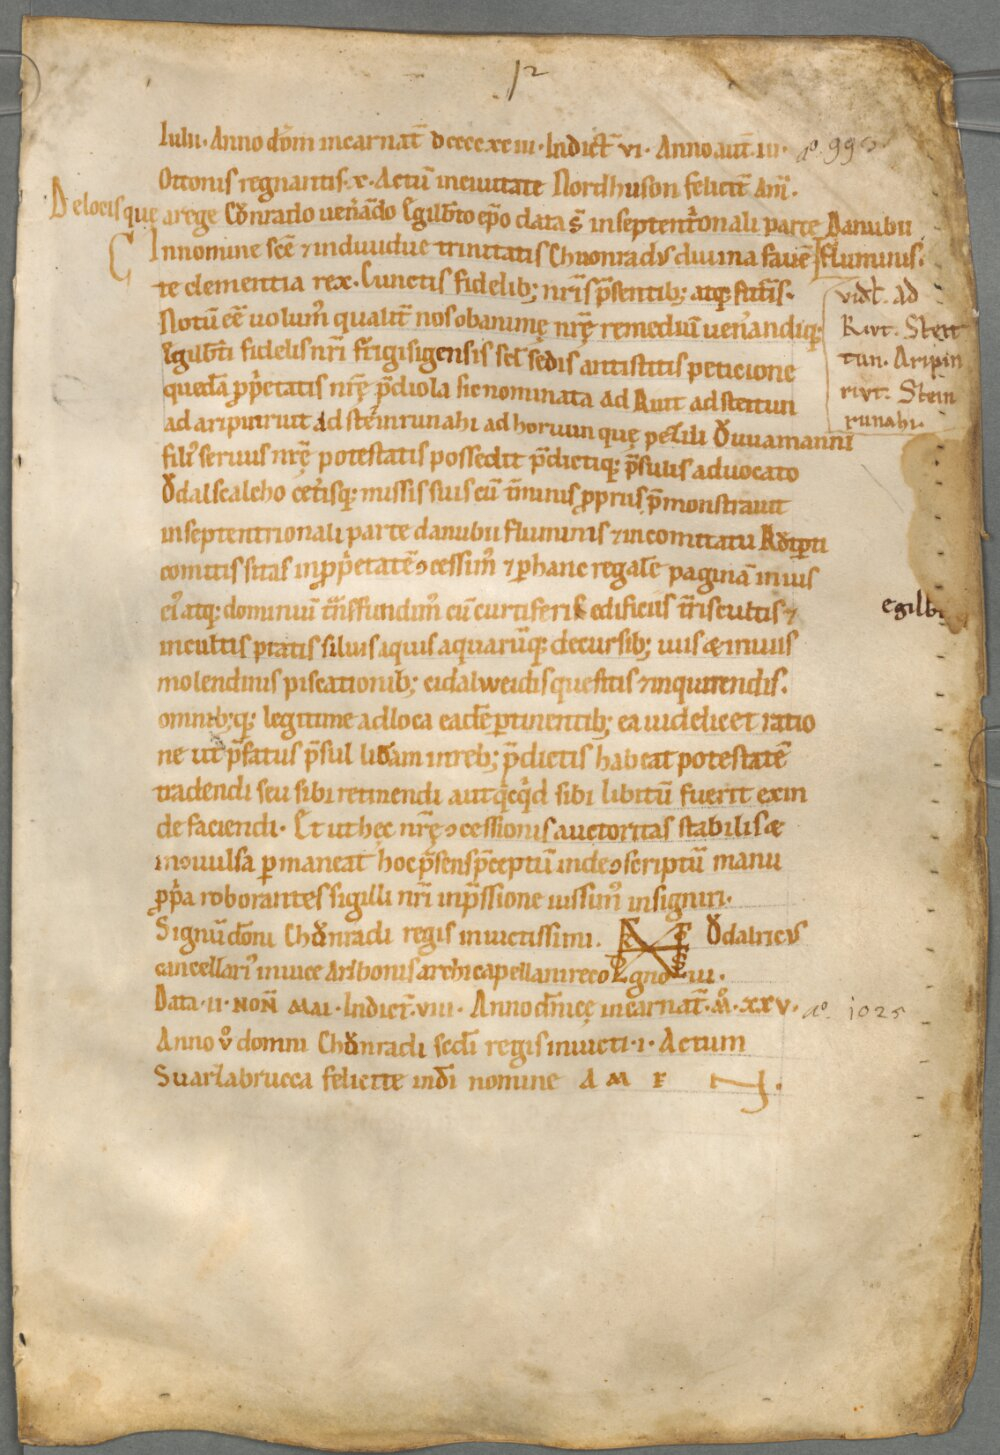 12
Iulii · Anno dñi incarnat̄ dcccc xc iii · Indict̄ vi · Anno aut̄ iii · aº. 993
Ottonis regnantis · x · Actū in civitate Nordhuson felicit̄ Am̄.
De locis que a rege Cŏnrado veñando Egilb̄to ep̄o data s̄ in septent'onali parte Danubii
fluminis.
C In nomine sc̄e ⁊ individue trinitatis Chuonradus divina faven
te clementia rex. Cunctis fidelib; nr̄is p̄sentib; atq; futur̄is.
Notū ēe volum' qualit̄ nos ob animę nr̄ę remediū ven'andiq;
Egilb̄ti fidelis nr̄i frigisigensis sc̄e sedis antistitis peticione
quedā pp'etatis nr̄ę p̄diola sic nominata ad Riut ad stettun
ad aripinriut ad steinrunahi ad horuun quę peZili Ŏuuamanni
fili' servus nr̄ę potestatis possedit p̄dictiq; p̄sulis advocato
Ŏdalscalcho cet'isq; missis suis cū t'minis ppriis p̄monstravit
in septentrionali parte danubii fluminis ⁊ in comitatu Adalp̄ti
comitis sitas in pp'etatē ɔcessim' ⁊ p hanc regalē paginā in ius
ei' atq; dominiū t̄nsfundim' cū curtiferis edificiis t̄ris cultis ⁊
incultis pratis silvis aquis aquarūq; decursib; viis & inviis
molendinis piscationib; cidalweidis quesitis ⁊ inquirendis.
omnib;q; legitime ad loca eadē ptinentib; ea videlicet ratio
ne ut p̄fatus p̄sul lib'am in reb; p̄dictis habeat potestatē
tradendi seu sibi retinendi aut q'cq'd sibi libitū fuerit exin
de faciendi. Et ut hęc nr̄ę ɔcessionis auctoritas stabilis &
inɔvulsa p maneat hoc p̄sens p̄ceptū inde ɔscriptū manu
pp'a roborantes sigilli nr̄i inp̄ssione iussim' insigniri.
Signū dom̄i Chŏnradi regis invictissimi. Ŏdalricus
cancellari' in vice Aribonis archicapellani recognovi.
Data · ii · NOÑ MAI · Indict̄. viii · Anno dn̄icę incarnat̄. M̊. xxv. aº. 1025
Anno v̊ domni Chŏnradi sed̄i regis invicti · i · Actum
SuarZabrucca felicite in d̄i nomine A M E N.
vidl̄. ad
Rivt. Stett
tun. Aripin
rivt. Stein
runahi.
egilb